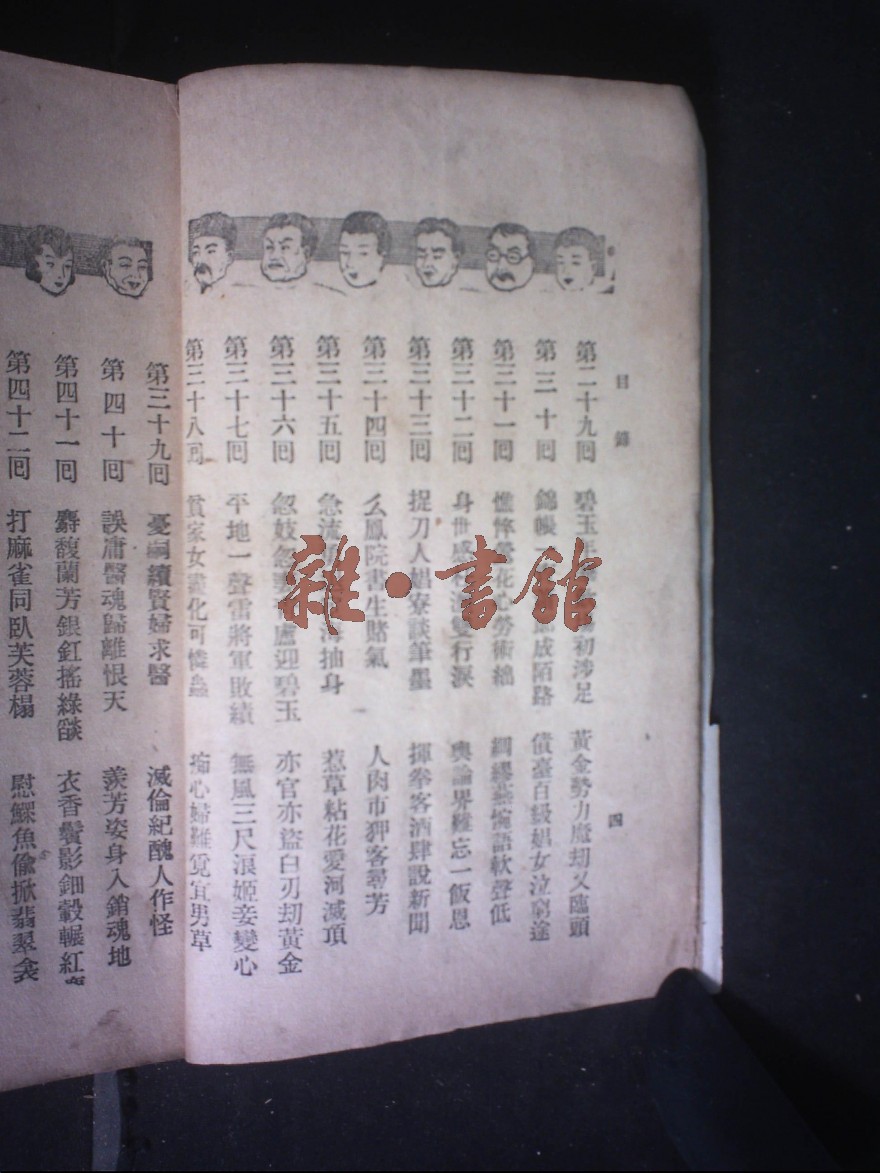 目錄
第二十九回 碧玉 初涉足 黃金勢力魔劫又臨頭
第三十回 錦帳 成陌路 債臺百級娼女泣窮途
第三十一回 憔悴 花 勞術絀 綢繆燕婉語軟聲低
第三十二回 身世 行淚 輿論界難忘一飯恩
第三十三回 捉刀人娼寮談筆墨 揮拳客酒肆說新聞
第三十四回 么鳳院書生賭氣 人肉市狎客尋芳
第三十五回 急流 抽身 惹草粘花愛河滅頂
第三十六回 忽妓忽 廬迎碧玉 亦官亦盜白刃劫黃金
第三十七回 平地一聲雷將軍敗績 無風三尺浪姬妾變心
第三十八回 貧家女盡化可憐蟲 痴心婦難覓宜男草
四
第三十九回 憂嗣續賢婦求醫 滅倫紀醜人作怪
第四十回 誤庸醫魂歸離恨天 羨芳姿身入銷魂地
第四十一回 麝馥蘭芳銀釭搖綠燄 衣香鬢影鈿轂輾紅
第四十二回 打麻雀同臥芙蓉榻 慰鰥魚偷掀翡翠衾
雜·書館